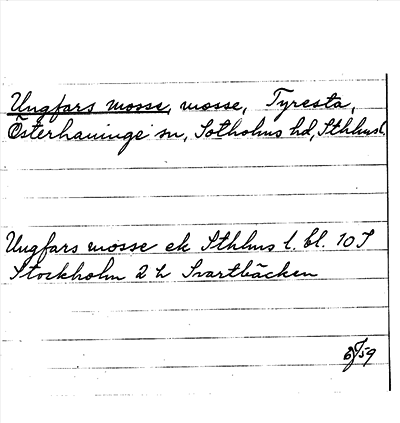 Ungfars mosse, mosse, Tyresta,
Österhaninge sn, Sotholms hd, Sthlms l.
Ungfars mosse ek Sthlms l. bl. 10 I
Stockholm 2 h Svartbäcken